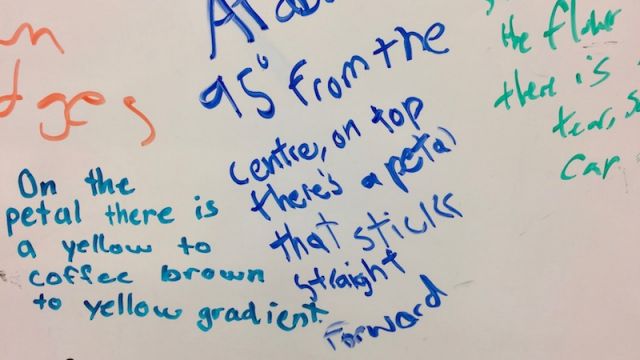 95° from the
centre, on top
there's a petal
that sticks
straight
forward
On the
petal there is
a yellow to
coffee brown
to yellow gradient
the flower
there is
tear,
car